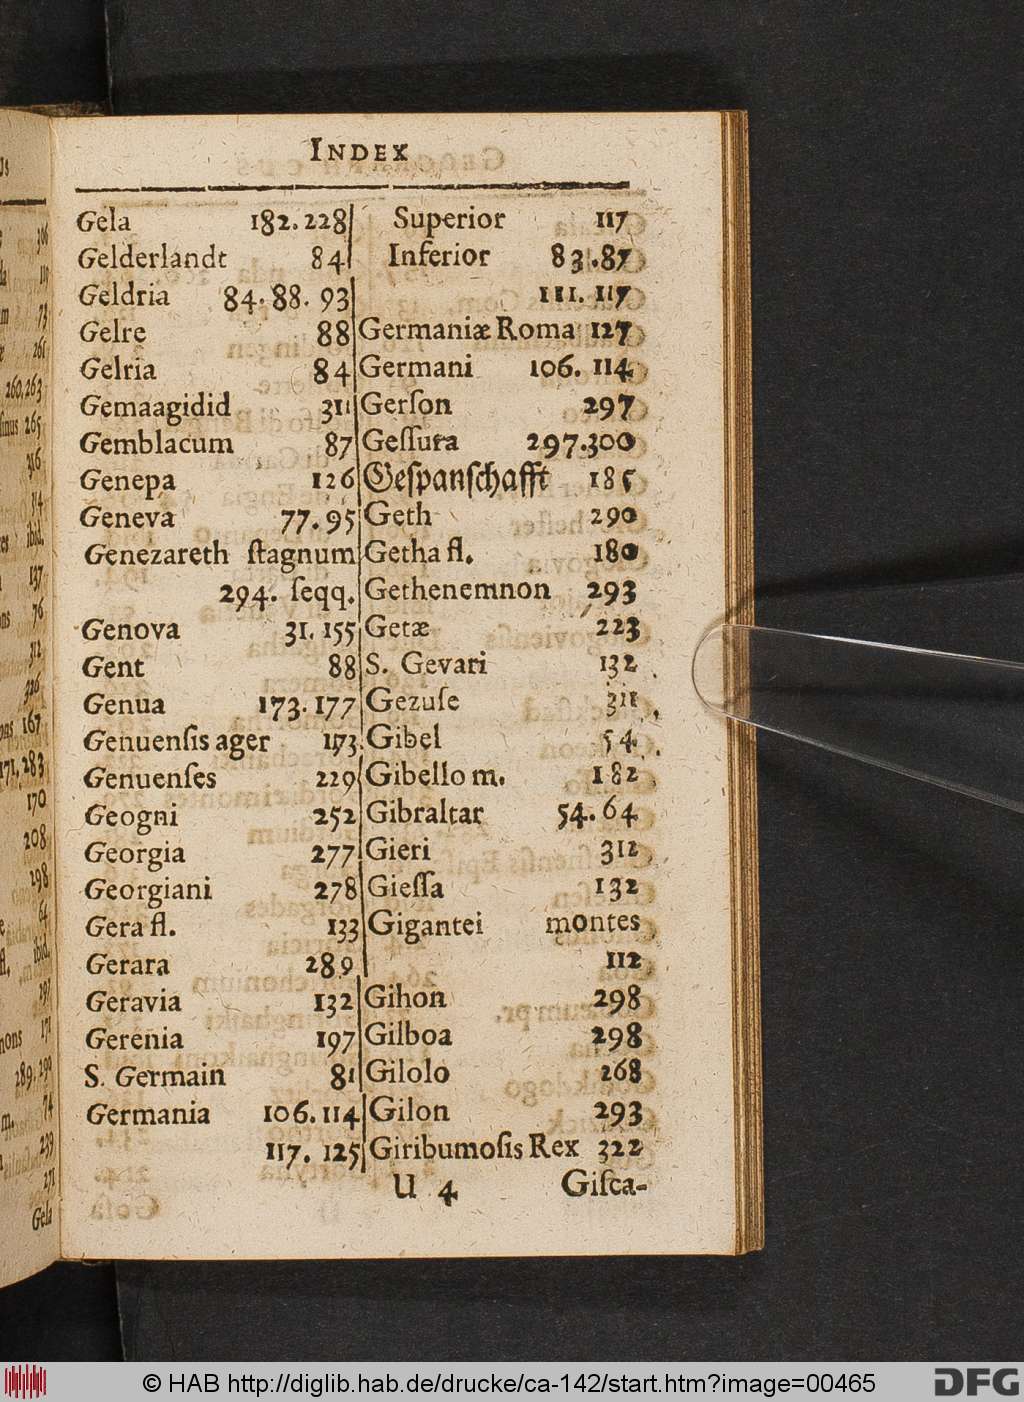 INDEX
Gela 182. 228
Gelderlandt 84
Geldria 84. 88. 93
Gelre 88
Gelria 84
Gemaagidid 311
Gemblacum 87
Genepa 126
Geneva 77. 95
Genezareth ſtagnum
294. ſeqq.
Genova 31. 155
Gent 88
Genua 173. 177
Genuenſis ager 173.
Genuenſes 229
Geogni 252
Georgia 277
Georgiani 278
Gera fl. 133
Gerara 289
Geravia 132
Gerenia 197
S. Germain 81
Germania 106. 114
117. 125
Superior 117
Inferior 83. 87
111. 117
Germaniæ Roma 127
Germani 106. 114
Gerſon 297
Geſſura 297. 300
Geſpanſchafft 185
Geth 290
Getha fl. 180
Gethenemnon 293
Getæ 223
S. Gevari 132
Gezuſe 311
Gibel 54
Gibello m. 182
Gibraltar 54. 64
Gieri 312
Gieſſa 132
Gigantei montes
112
Gihon 298
Gilboa 298
Gilolo 268
Gilon 293
Giribumoſis Rex 322
U 4 Giſca-
306
73
261
260, 263
265
316
ibid.
137
76
312
326
167
171, 283
170
208
298
64
ibid.
297
171
289. 290
74
239
271
Gela
© HAB http://diglib.hab.de/drucke/ca-142/start.htm?image=00465
DFG